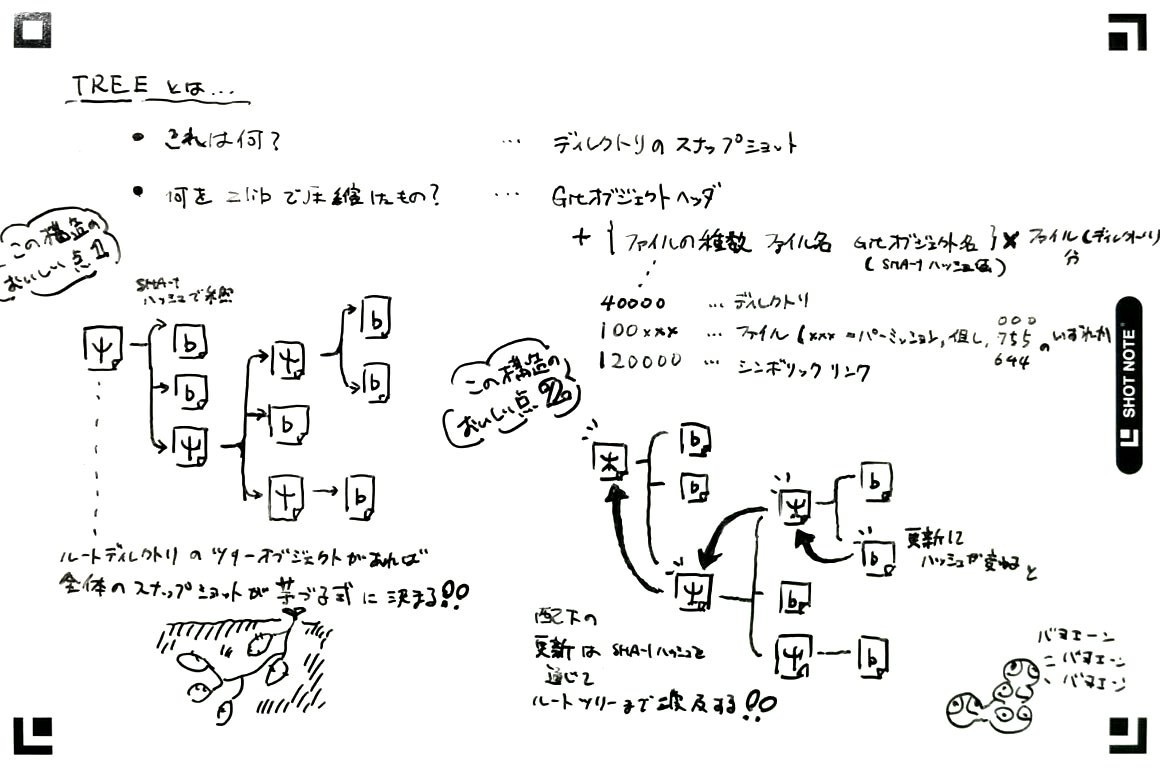 TREE とは…
• これは何? … ディレクトリのスナップショット
• 何を zlib で圧縮したもの? … Gitオブジェクトヘッダ
+ { ファイルの種数 ファイル名 Gitオブジェクト名 } × ファイル(ディレクトリ)
(SHA-1 ハッシュ値)
分
40000 … ディレクトリ
100xxx … ファイル (xxx = パーミッション, 但し, 000 755 644 のいずれか
120000 … シンボリックリンク
この構造の
おいしい点 1
SHA-1
ハッシュで参照
b
b
b
b
b
b
ルートディレクトリのツリーオブジェクトがあれば
全体のスナップショットが芋づる式に決まる!!
この構造の
おいしい点 2
木
b
b
b
b
b
b
更新して
ハッシュが変わると
配下の
更新は SHA-1ハッシュを
通じて
ルートツリーまで波及する!!
バヨエーン
バヨエーン
バヨエーン
SHOT NOTE